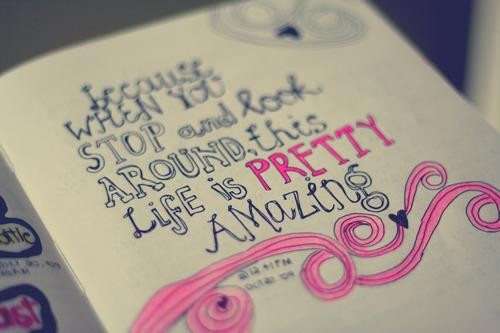 because
WHEN YOU
STOP and look
AROUND, this
Life is PRETTY
AMAZING
@12:41PM
OCT 20, '09